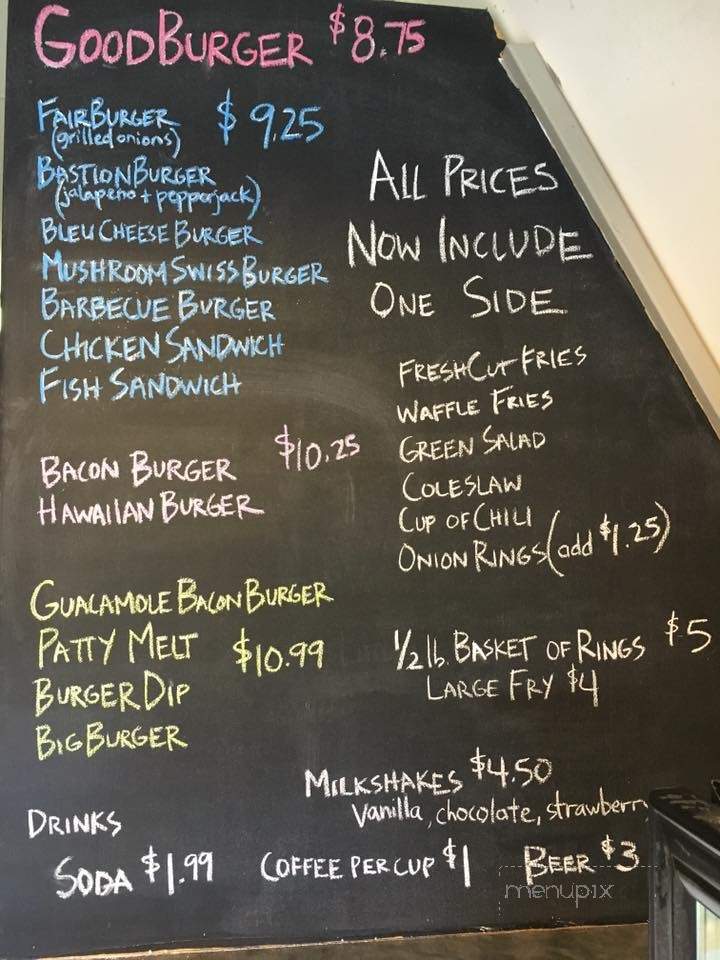 GOODBURGER $8.75
FAIRBURGER $9.25
(grilled onions)
BASTIONBURGER
(jalapeño + pepperjack)
BLEU CHEESE BURGER
MUSHROOM SWISS BURGER
BARBECUE BURGER
CHICKEN SANDWICH
FISH SANDWICH
BACON BURGER $10.25
HAWAIIAN BURGER
GUACAMOLE BACON BURGER
PATTY MELT $10.99
BURGER DIP
BIG BURGER
ALL PRICES
NOW INCLUDE
ONE SIDE
FRESH CUT FRIES
WAFFLE FRIES
GREEN SALAD
COLESLAW
CUP OF CHILI
ONION RINGS (add $1.25)
1/2 lb. BASKET OF RINGS $5
LARGE FRY $4
MILKSHAKES $4.50
Vanilla, chocolate, strawberry
DRINKS
SODA $1.99 COFFEE PER CUP $1 BEER $3
menupix